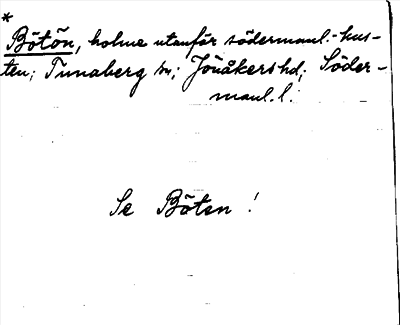 *
Bötön, holme utanför södermanl.-kus-
ten; Tunaberg sn; Jönåkers hd; Söder-
manl. l.
Se Böten!